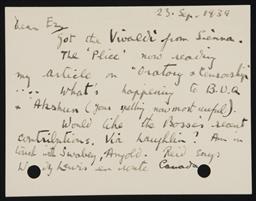 23. Sep. 1939
Dear Ez,
Got the Vivaldi from Sienna.
The 'Plice' now reading
my article on "Oratory & censorship"
.... What's happening to B.U.Q
& 'Akshun' (your spelling now most useful).
Would like the Bosses recent
contributions. Via Laughlin? Am in
touch with Swabey, Angold. Reid says
Wyndham Lewis en route Canada